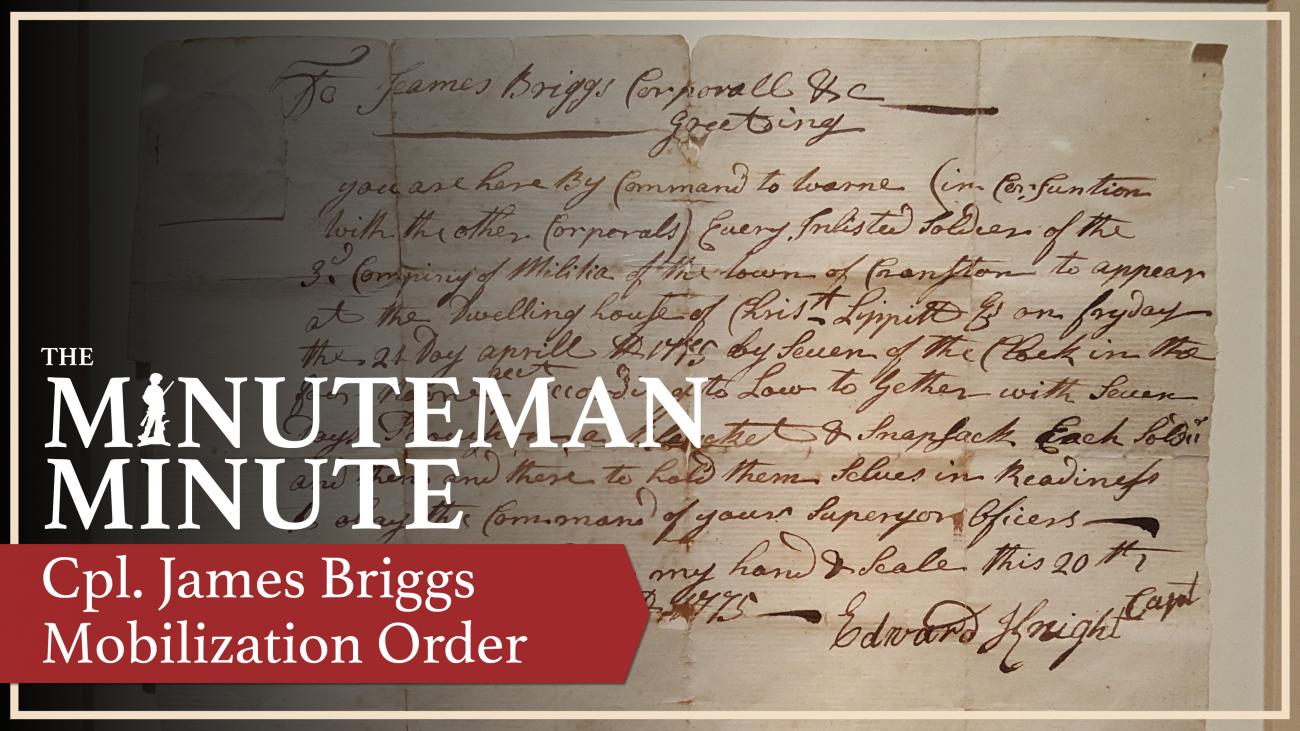 To Jeames Briggs Corporall &c
Greeting
you are here By Command to warne (in Conjuntion
with the other Corporals) Every Inlisted Soldier of the
3d Compniny of Militia of the town of Cranston to appear
at the Dwelling house of Christr Lippitt Es on fryday
the 21 Day aprill AD 1775 by Seven of the Clock in the
to Law to Gether with Seven
Days & Snapsack Each Soldir
and then and there to hold them Selves in Readiness
to obay the Command of your Superyor Oficers
my hand & Seale this 20th
1775
Edward Knight Capt
THE
MINUTEMAN
MINUTE
Cpl. James Briggs
Mobilization Order